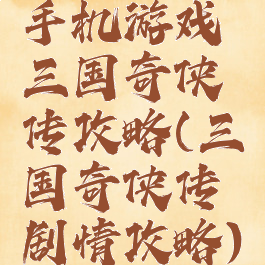 手机游戏
三国奇侠
传攻略(三
国奇侠传
剧情攻略)